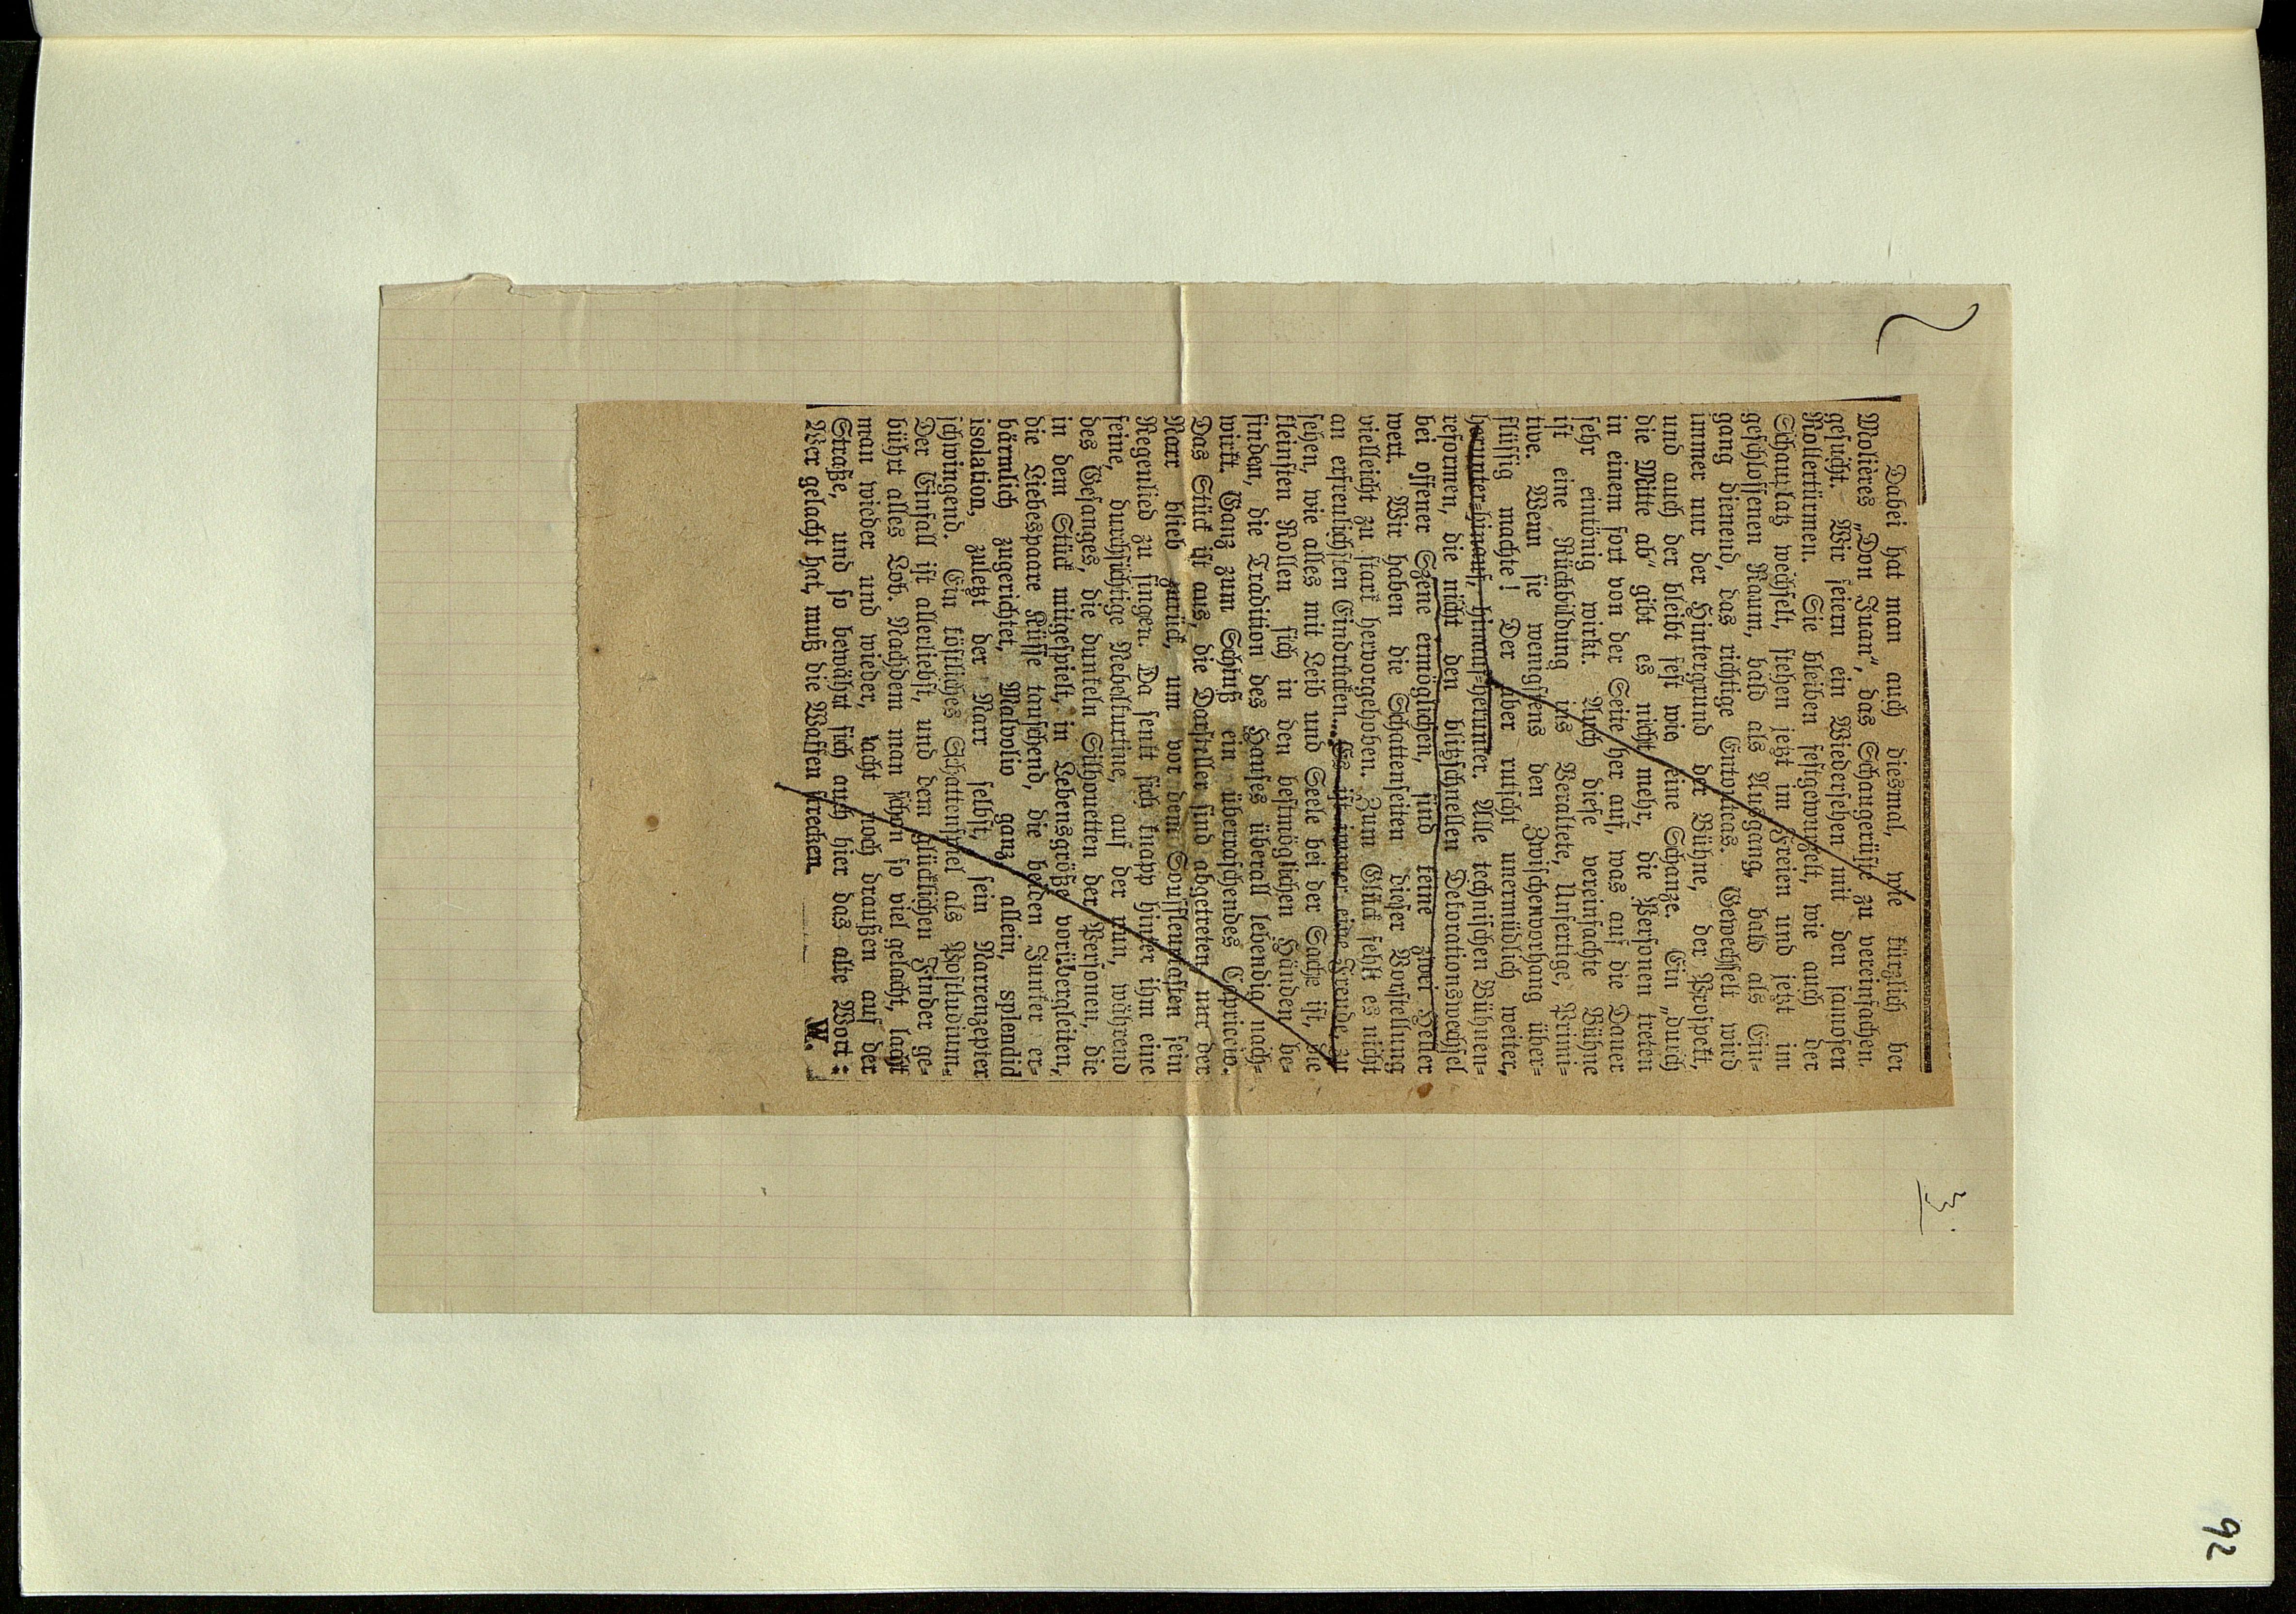 3.
Dabei hat man auch diesmal, wie kürzlich bei
Molières „Don Juan“, das Schaugerüste zu vereinfachen
gesucht. Wir feiern ein Wiedersehen mit den famosen
Rollertürmen. Sie bleiben festgewurzelt, wie auch der
Schauplatz wechselt, stehen jetzt im Freien und jetzt im
geschlossenen Raum, bald als Ausgang, bald als Ein-
gang dienend, das richtige Entoutcas. Gewechselt wird
immer nur der Hintergrund der Bühne, der Prospekt,
und auch der bleibt fest wie eine Schanze. Ein „durch
die Mitte ab“ gibt es nicht mehr, die Personen treten
in einem fort von der Seite her auf, was auf die Dauer
sehr eintönig wirkt. Auch diese vereinfachte Bühne
ist eine Rückbildung ins Veraltete, Unfertige, Primi-
tive. Wenn sie wenigstens den Zwischenvorhang über-
flüssig machte! Der aber rutscht unermüdlich weiter,
herunter-hinauf, hinauf-herunter. Alle technischen Bühnen-
reformen, die nicht den blitzschnellen Dekorationswechsel
bei offener Szene ermöglichen, sind keine zwei Heller
wert. Wir haben die Schattenseiten dieser Vorstellung
vielleicht zu stark hervorgehoben. Zum Glück fehlt es nicht
an erfreulichsten Eindrücken. Es ist immer eine Freude, zu
sehen, wie alles mit Leib und Seele bei der Sache ist, die
kleinsten Rollen sich in den bestmöglichen Händen be-
finden, die Tradition des Hauses überall lebendig nach-
wirkt. Ganz zum Schluß ein überraschendes Capriccio.
Das Stück ist aus, die Darsteller sind abgetreten, nur der
Narr blieb zurück, um vor dem Souffleurkasten sein
Regenlied zu singen. Da senkt sich knapp hinter ihm eine
feine, durchsichtige Nebelkurtine, auf der nun, während
des Gesanges, die dunkeln Silhouetten der Personen, die
in dem Stück mitgespielt, in Lebensgröße vorübergleiten,
die Liebespaare Küsse tauschend, die beiden Junker er-
bärmlich zugerichtet, Malvolio ganz allein, splendid
isolation, zuletzt der Narr selbst, sein Narrenzepter
schwingend. Ein köstliches Schattenspiel als Postludium.
Der Einfall ist allerliebst, und dem glücklichen Finder ge-
bührt alles Lob. Nachdem man schon so viel gelacht, lacht
man wieder und wieder, lacht noch draußen auf der
Straße, und so bewährt sich auch hier das alte Wort:
Wer gelacht hat, muß die Waffen strecken.
W.
92